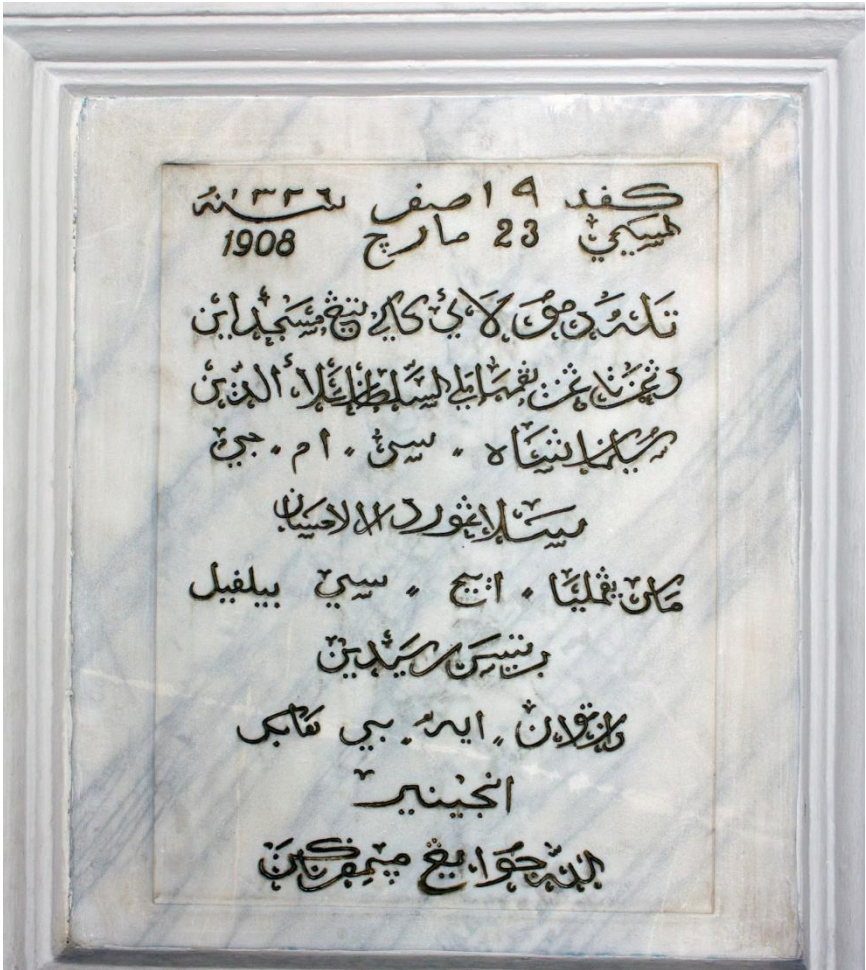 كفد ١٩ صفر سنه ١٣٢٦
مسيحي 23 مارچ 1908
تله دمولائي كالي تيڠ مسجد اين
دڠن تاڠن يڠمهاملي السلطان علاء الدين
سليمانشاه . سي . ام . جي
سلاڠور دارالاحسان
مان يڠمليا . ايچ . سي بيلفيل
بريتيس ريسيدين
دان توان . ايه . بي هابك
انجينير
الله جوا يڠ